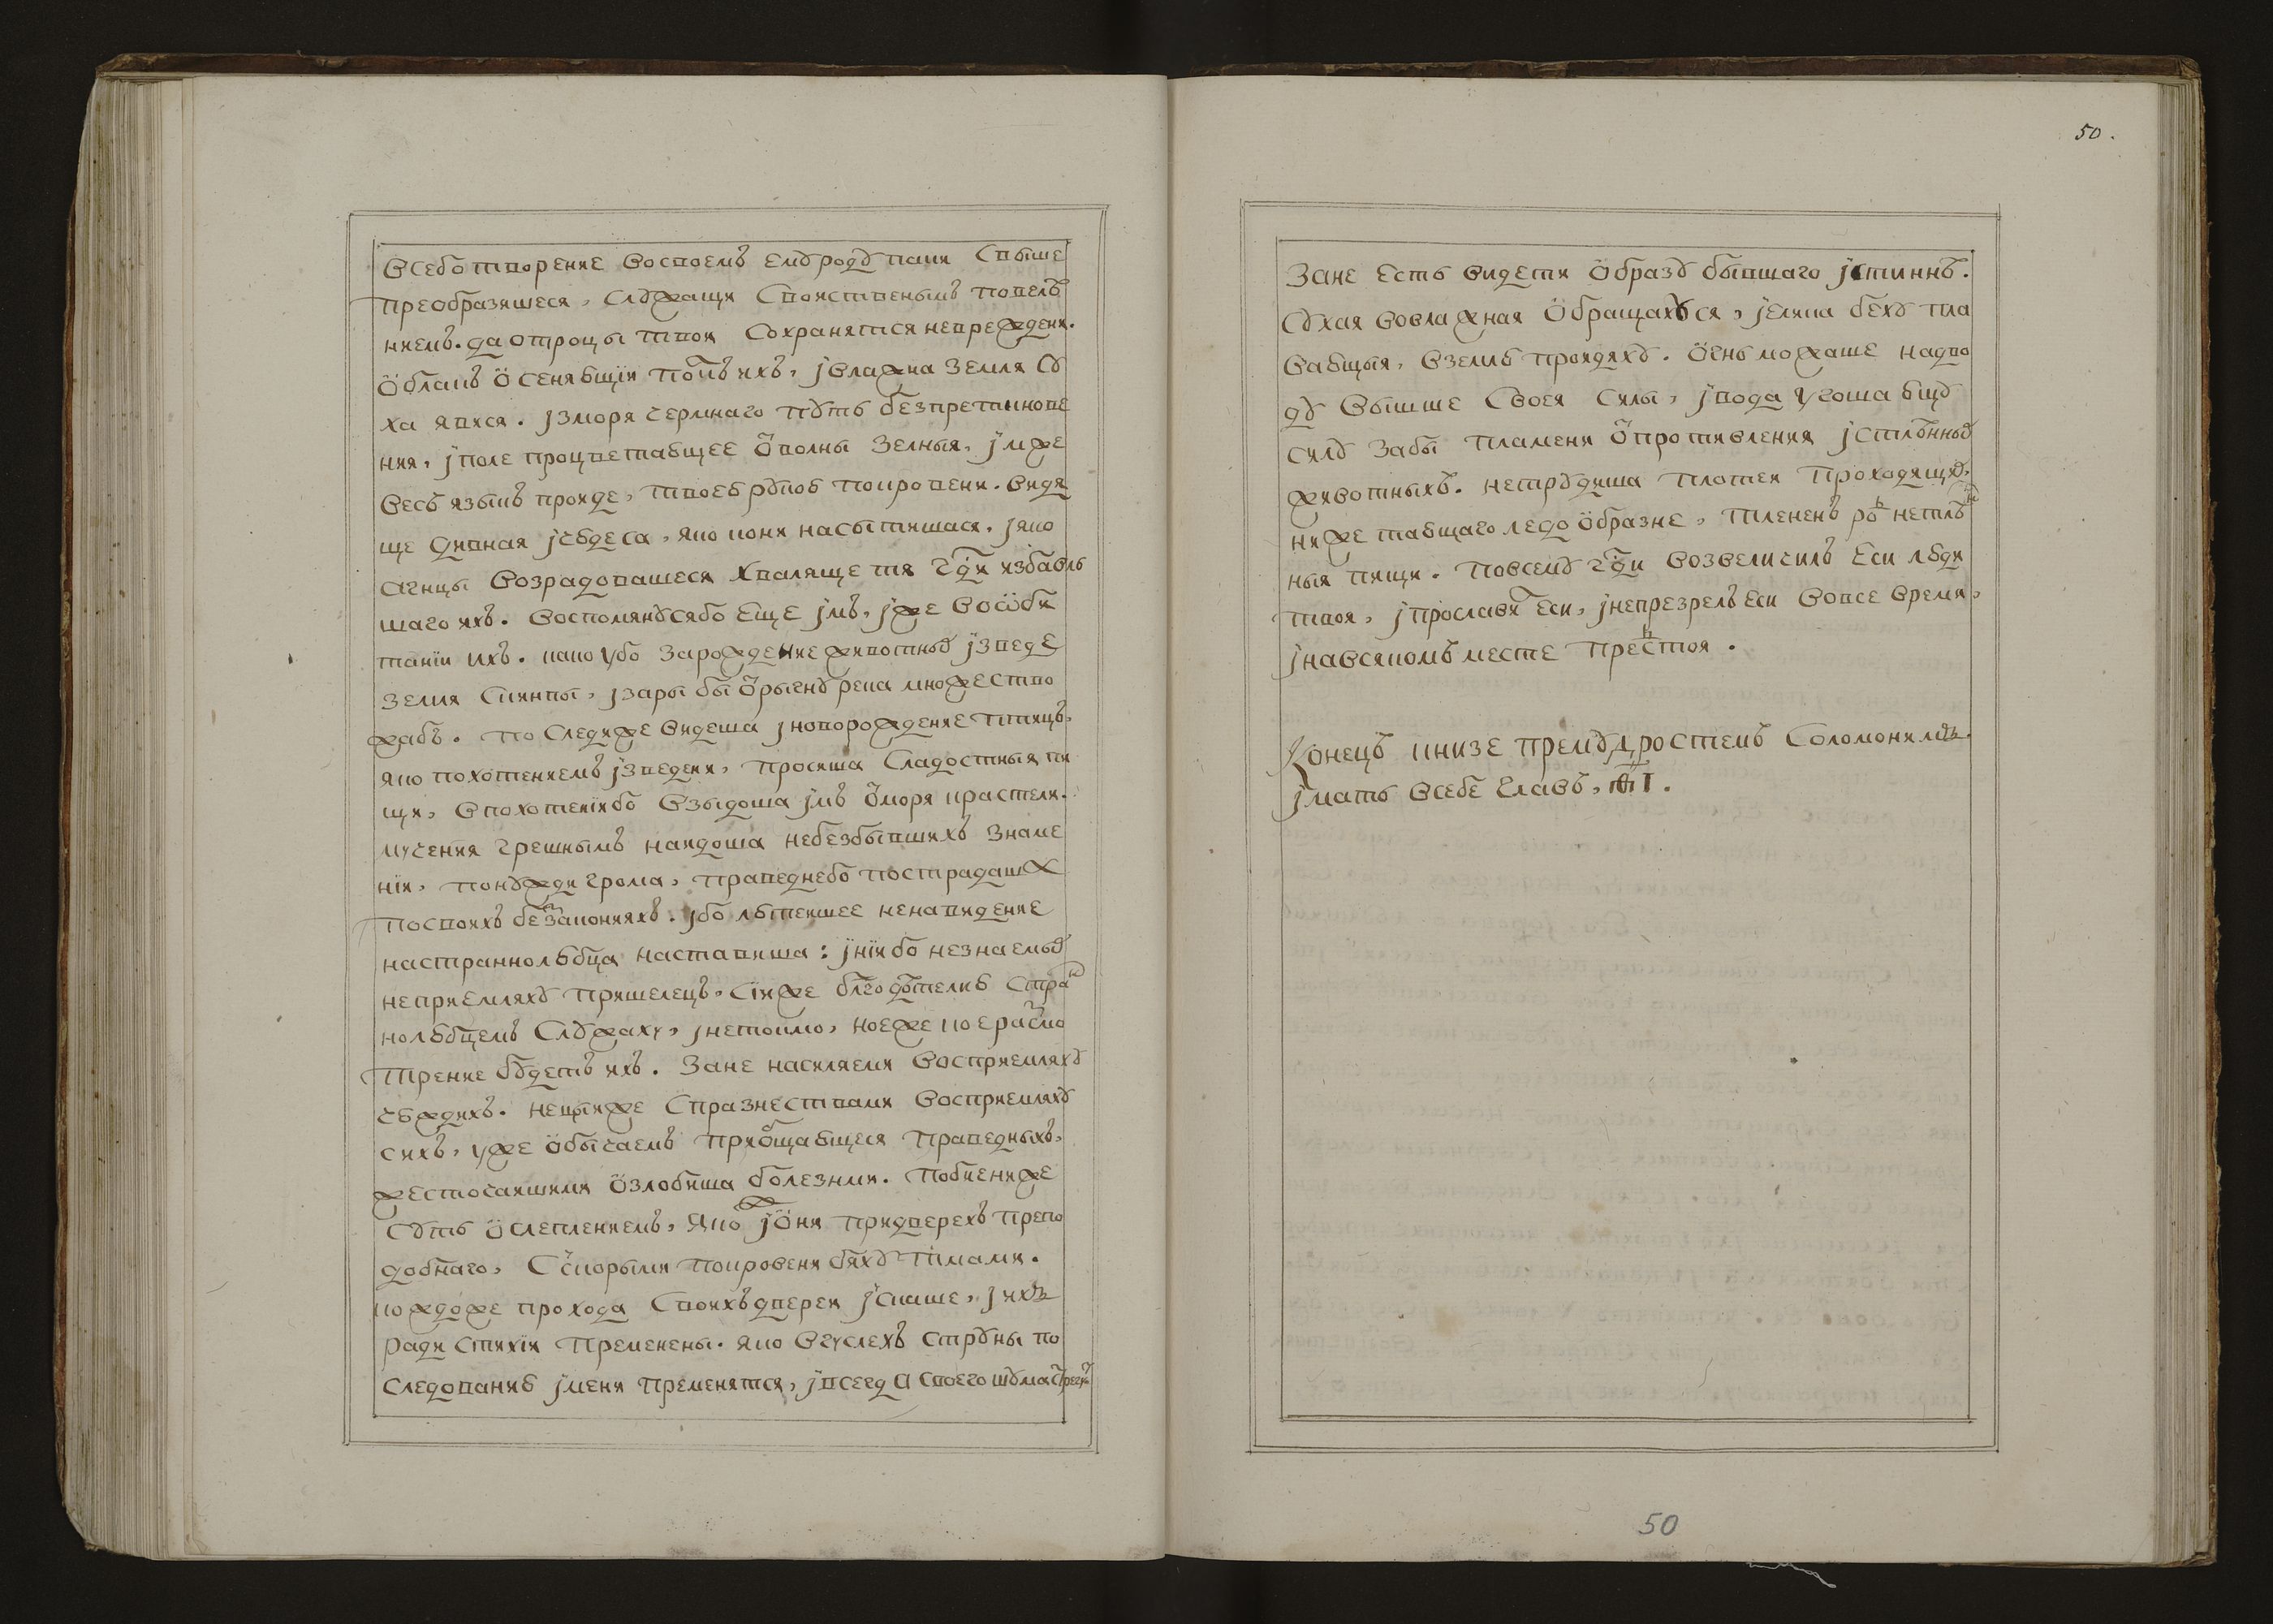 всебо творение восвоемъ емꙋродꙋ паки свыше
преобразишеся, слꙋжащи своиственымъ повелѣ
ниемъ. да отроцы твои сохранятся невреждени.
ѡблакъ ѡсеняющїи полкъ ихъ, ꙇвлажна земля сꙋ
ха явися. ꙇзморя чермнаго пꙋть безпретыкнове
ния, ꙇполе процветающее ѿволны зелныя, ꙇмже
весь языкъ проиде, твоею рꙋкою покровени. видя
ще дивная ꙇчюдеса, яко кони насытишася. ꙇяко
агнцы возрадовашеся хваляще тя гдⷭ҇и избавль
шаго ихъ. воспомянꙋсябо еще ꙇмъ, ꙇже восѡби
танїи ихъ. како убо зарождение животныⷯ ꙇзведе
земля скнипы, ꙇзарыбы ѿрыгнꙋ река множество
жабъ. последиже видеша ꙇноворождение птицъ,
яко похотениемъ ꙇзведени, просиша сладостныя пи
щи, впохотенїибо взыдоша ꙇмъ ѿморя крастели.
мучения грешнымъ наидоша небезбывшихъ знаме
нїи, понꙋжди грома, праведнебо пострадаша
посвоихъ беззаконияхъ. ꙇбо лютеишее ненавидение
настраннолюбца наставиша: ꙇнїибо незнаемыⷯ
неприемляхꙋ пришелецъ, сїиже блг҃одѣтелию страⷩ
нолюбцемъ слꙋжахꙋ, ꙇнетокмо, ноеже коераⷥчмо
трение бꙋдетъ ихъ. зане насиляеми восприемляхꙋ
чюждихъ. нецыиже спразнествами восприемляхꙋ
сихъ, уже ѡбычаемъ приѻбщающеся праведныхъ,
жесточаишими ѡзлобиша болезнми. побиениже
сꙋть ѡслеплениемъ, якоⷤ ꙇѡни придверехъ препо
добнаго, скорыми покровени бяхꙋ тмами.
кождоже прохода своихъ дверей ꙇскаше, ꙇихъ
ради стихїи пременены. яко вгуслехъ стрꙋны по
следованию ꙇмени пременятся, ꙇвсегда своего шꙋма стрегꙋⷮ
50.
Зане есть видети ѡбразꙋ бывшаго ꙇстиннѣ.
сꙋхая вовлажная ѡбращахꙋся, ꙇелика бехꙋ пла
вающыя, вземлю проидяхꙋ. ѡгнь можаше надво
дꙋ вышше своея силы, ꙇвода угошающꙋ
силꙋ забы пламени ѿпротивления ꙇстлѣнныⷯ
животныхъ. нетрꙋдиша плотеи проходящиⷯ,
ниже тающаго ледоѡбразне, тлененъ роⷣ нетлѣⷩ
ныя пищи. повсемꙋ гдⷭ҇и возвеличилъ еси люди
твоя, ꙇпрославиⷧ еси, ꙇнепрезрелъ еси вовсе время,
ꙇнавсякомъ месте преⷣстоя.
Конецъ книзе премꙋдростемъ Соломонимъ.
ꙇмать всебе главъ, ѳ҃ꙇ.
50